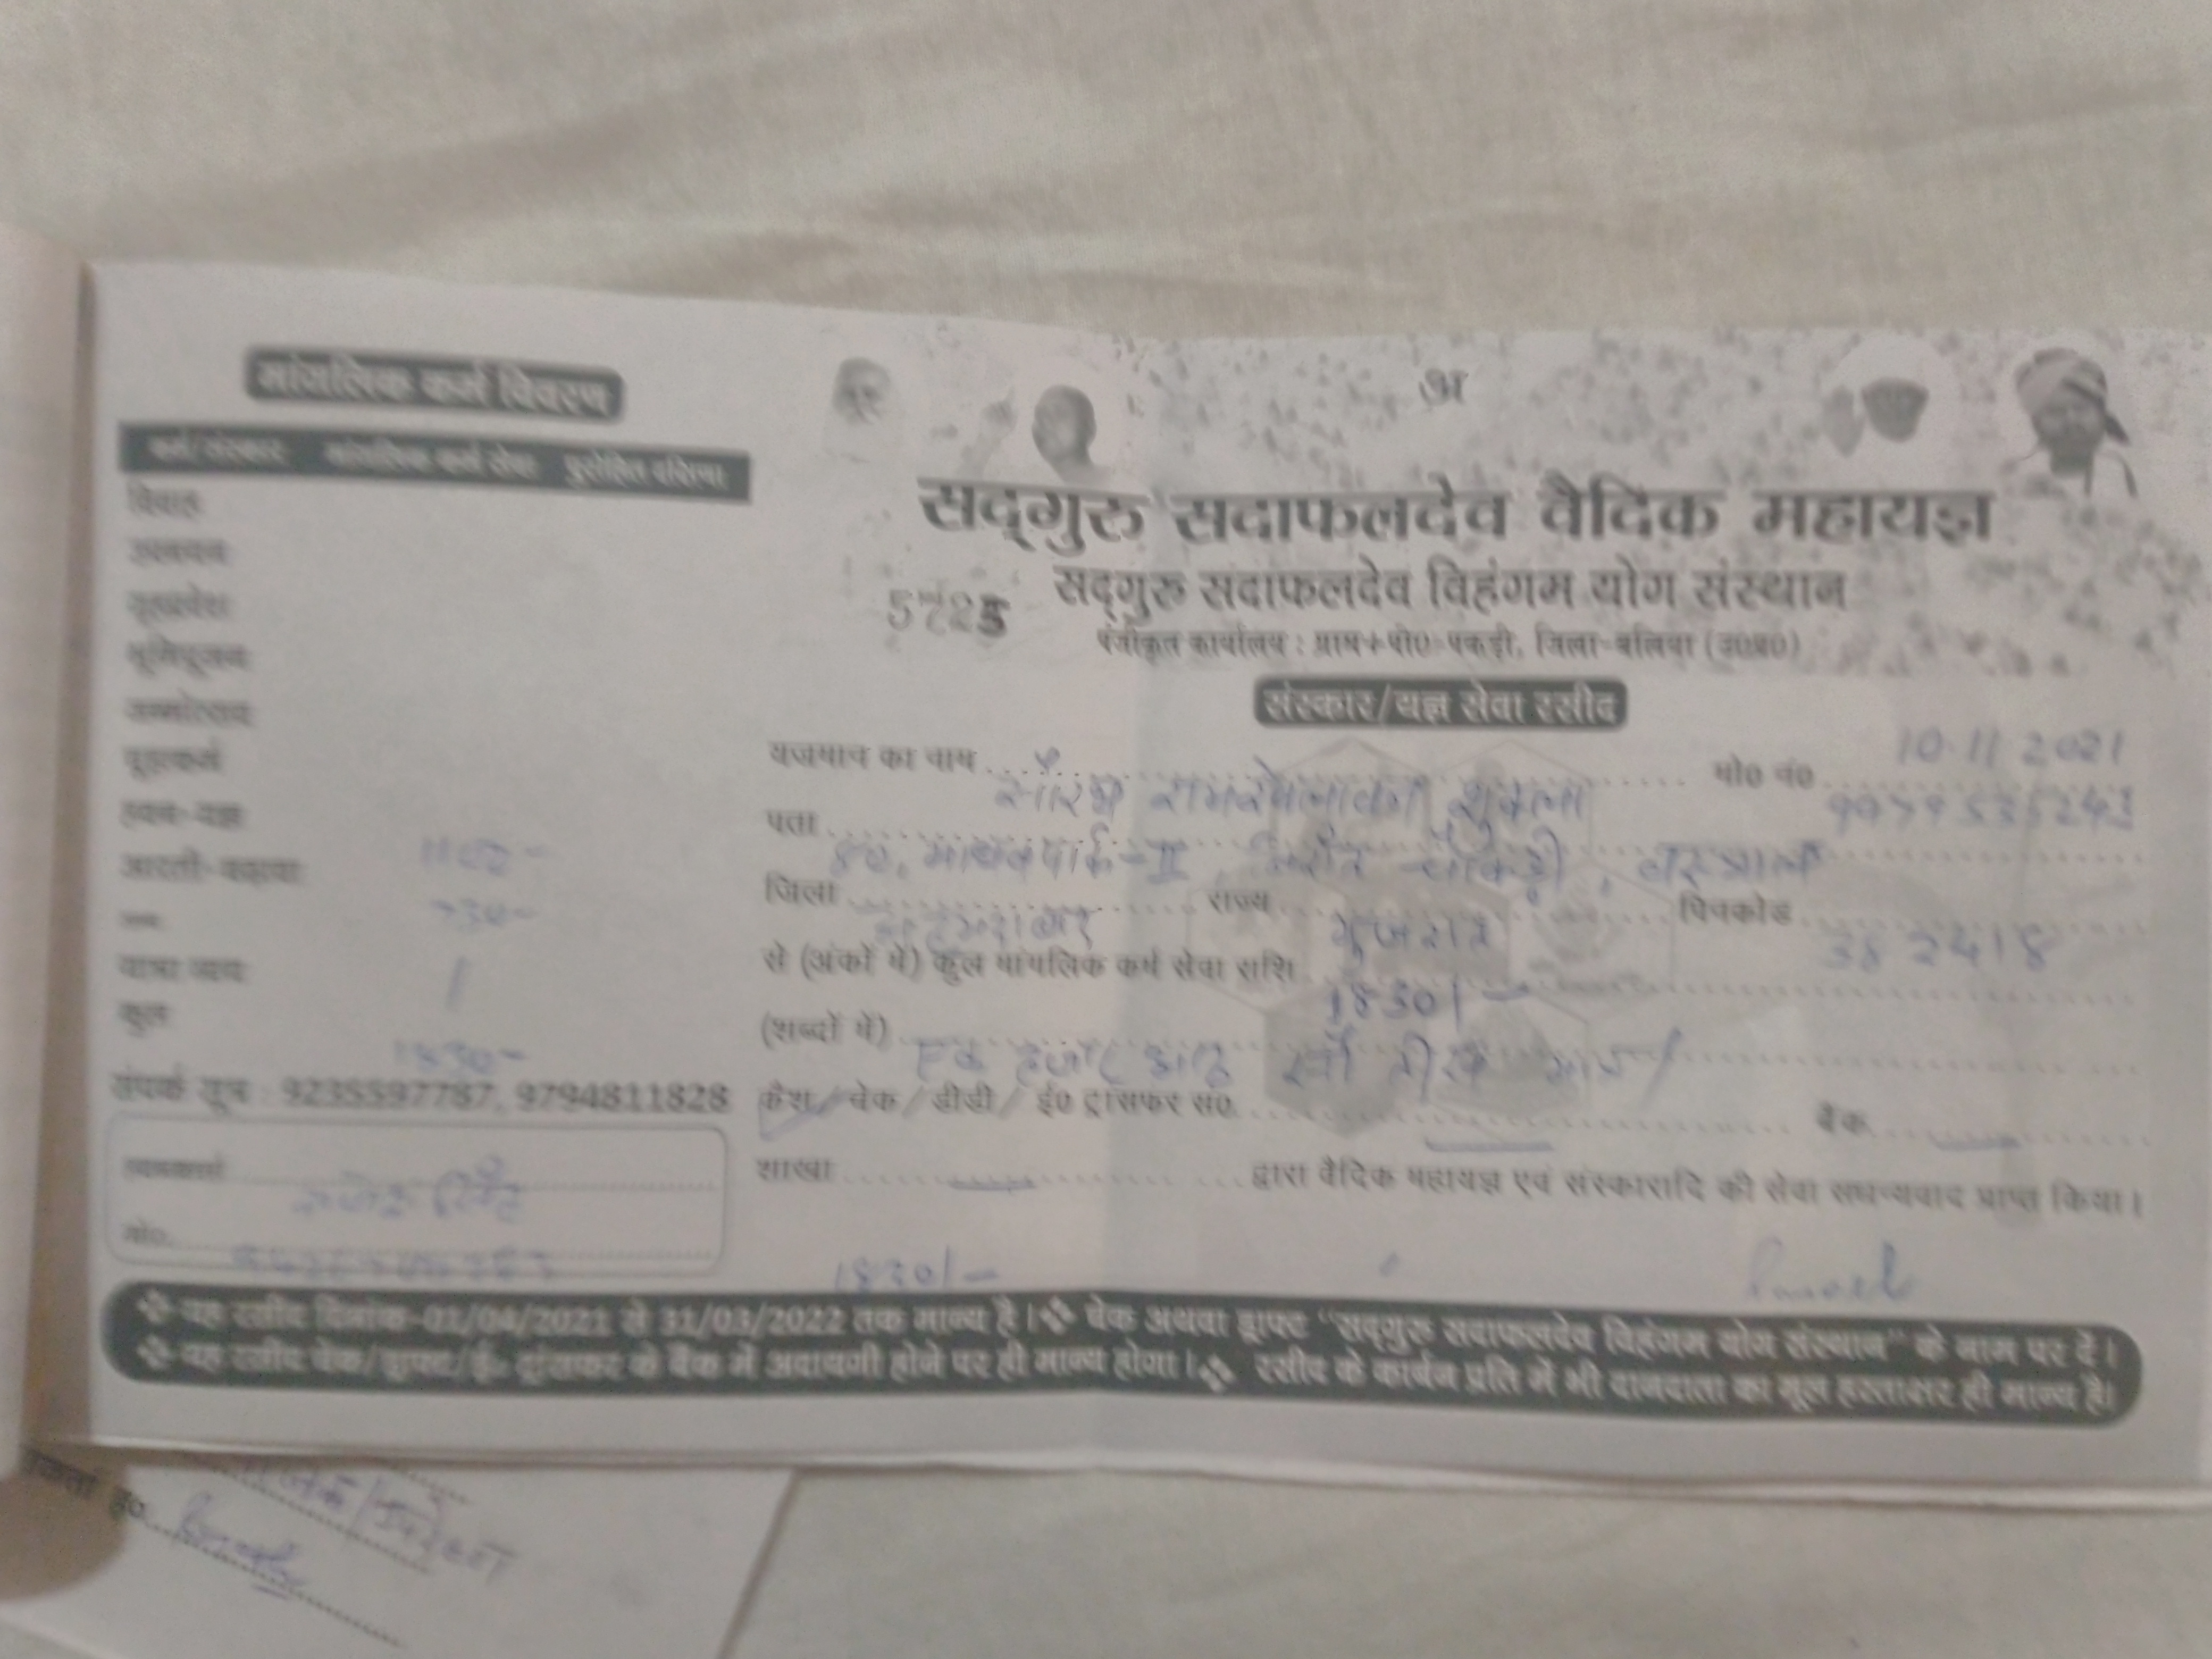 मांगलिक कर्म विवरण
कर्म/संस्कार मांगलिक कर्म सेवा पुरोहित दक्षिणा
विवाह
उपनयन
गृहप्रवेश
भूमिपूजन
जन्मोत्सव
मुंडनकर्म
हवन-यज्ञ
आरती-चढ़ावा 1100-
730-
यात्रा व्यय
कुल 1830-
संपर्क सूत्र : 9235597787, 9794811828
मो०.
अ
सद्गुरु सदाफलदेव वैदिक महायज्ञ
सद्गुरु सदाफलदेव विहंगम योग संस्थान
5725
पंजीकृत कार्यालय : ग्राम+पो०-पकड़ी, जिला-बलिया (उ०प्र०)
संस्कार/यज्ञ सेवा रसीद
10.11 2021
यजमान का नाम सौरभ शुक्ला मो० नं०
पता 80, माधव पार्क-II, चौकड़ी, वस्त्राल
जिला अहमदाबाद राज्य गुजरात पिनकोड 382418
से (अंकों में) कुल मांगलिक कर्म सेवा राशि 1830/-
(शब्दों में) एक हजार आठ सौ तीस मात्र/
कैश/चेक/डीडी/ ई० ट्रांसफर सं० बैंक
शाखा द्वारा वैदिक महायज्ञ एवं संस्कारादि की सेवा सधन्यवाद प्राप्त किया।
1830/-
यह रसीद दिनांक-01/04/2021 से 31/03/2022 तक मान्य है। चेक अथवा ड्राफ्ट "सद्गुरु सदाफलदेव विहंगम योग संस्थान" के नाम पर दें।
यह रसीद चेक/ड्राफ्ट/ई० ट्रांसफर के बैंक में अदायगी होने पर ही मान्य होगा। रसीद के कार्बन प्रति में भी दानदाता का मूल हस्ताक्षर ही मान्य है।